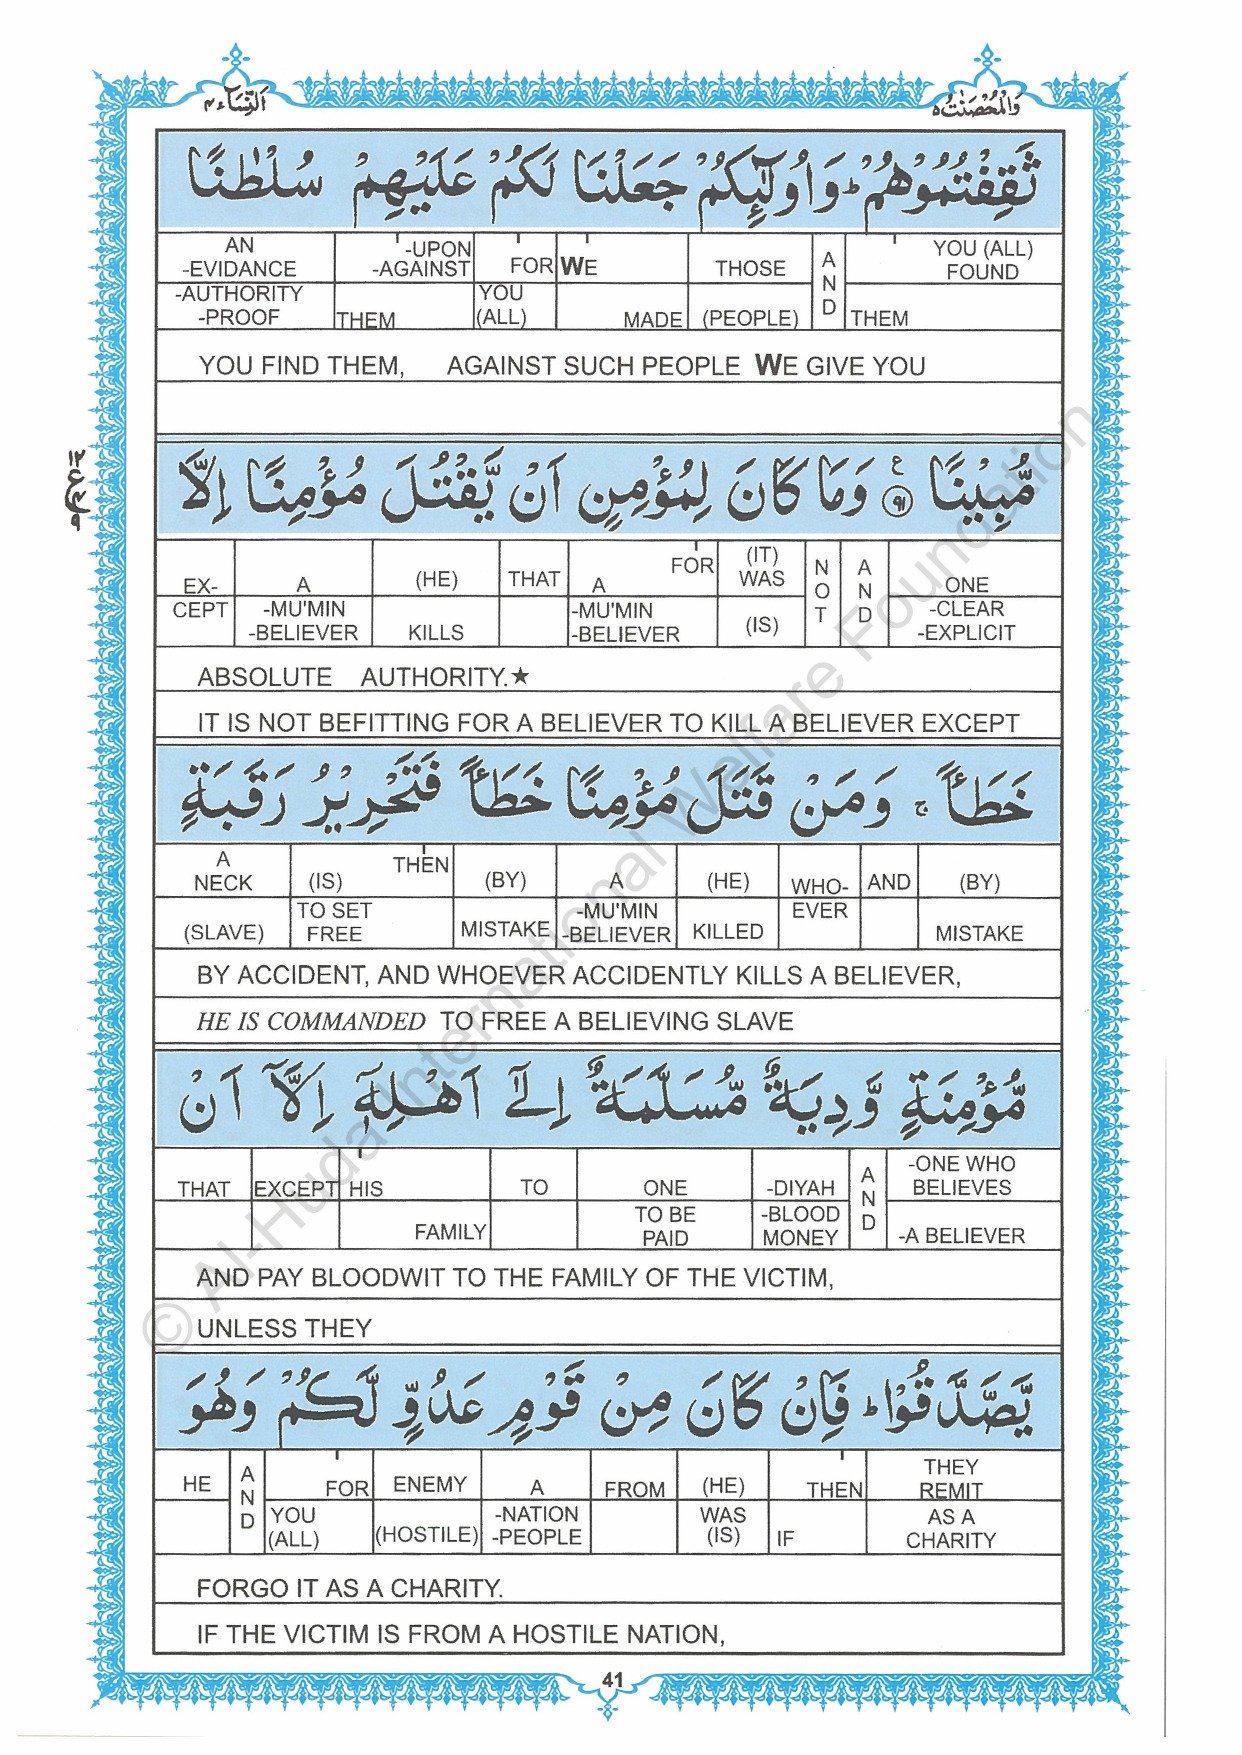 اَلنِّسَآء ٤ وَالْمُحْصَنٰتُ ٥
ثَقِفْتُمُوْهُمْ ؕ وَاُولٰٓئِكُمْ جَعَلْنَا لَكُمْ عَلَيْهِمْ سُلْطٰنًا
AN -UPON FOR WE THOSE A YOU (ALL)
-EVIDANCE -AGAINST N FOUND
-AUTHORITY YOU D
-PROOF THEM (ALL) MADE (PEOPLE) THEM
YOU FIND THEM, AGAINST SUCH PEOPLE WE GIVE YOU
مُّبِيْنًا ۹۱ ع وَمَا كَانَ لِمُؤْمِنٍ اَنْ يَّقْتُلَ مُؤْمِنًا اِلَّا
EX- A (HE) THAT A FOR (IT) N A ONE
WAS O N
CEPT -MU'MIN KILLS -MU'MIN (IS) T D -CLEAR
-BELIEVER -BELIEVER -EXPLICIT
ABSOLUTE AUTHORITY.★
IT IS NOT BEFITTING FOR A BELIEVER TO KILL A BELIEVER EXCEPT
خَطَـًٔا ۚ وَمَنْ قَتَلَ مُؤْمِنًا خَطَـًٔا فَتَحْرِيْرُ رَقَبَةٍ
A THEN
NECK (IS) (BY) A (HE) WHO- AND (BY)
TO SET -MU'MIN EVER
(SLAVE) FREE MISTAKE -BELIEVER KILLED MISTAKE
BY ACCIDENT, AND WHOEVER ACCIDENTLY KILLS A BELIEVER,
HE IS COMMANDED TO FREE A BELIEVING SLAVE
مُّؤْمِنَةٍ وَّدِيَةٌ مُّسَلَّمَةٌ اِلٰٓى اَهْلِهٖٓ اِلَّآ اَنْ
A -ONE WHO
THAT EXCEPT HIS TO ONE -DIYAH N BELIEVES
TO BE -BLOOD D
FAMILY PAID MONEY -A BELIEVER
AND PAY BLOODWIT TO THE FAMILY OF THE VICTIM,
UNLESS THEY
يَّصَّدَّقُوْا ؕ فَاِنْ كَانَ مِنْ قَوْمٍ عَدُوٍّ لَّكُمْ وَهُوَ
HE A FOR ENEMY A FROM (HE) THEN THEY
N REMIT
D YOU -NATION WAS AS A
(ALL) (HOSTILE) -PEOPLE (IS) IF CHARITY
FORGO IT AS A CHARITY.
IF THE VICTIM IS FROM A HOSTILE NATION,
41
© Al-Huda International Welfare Foundation